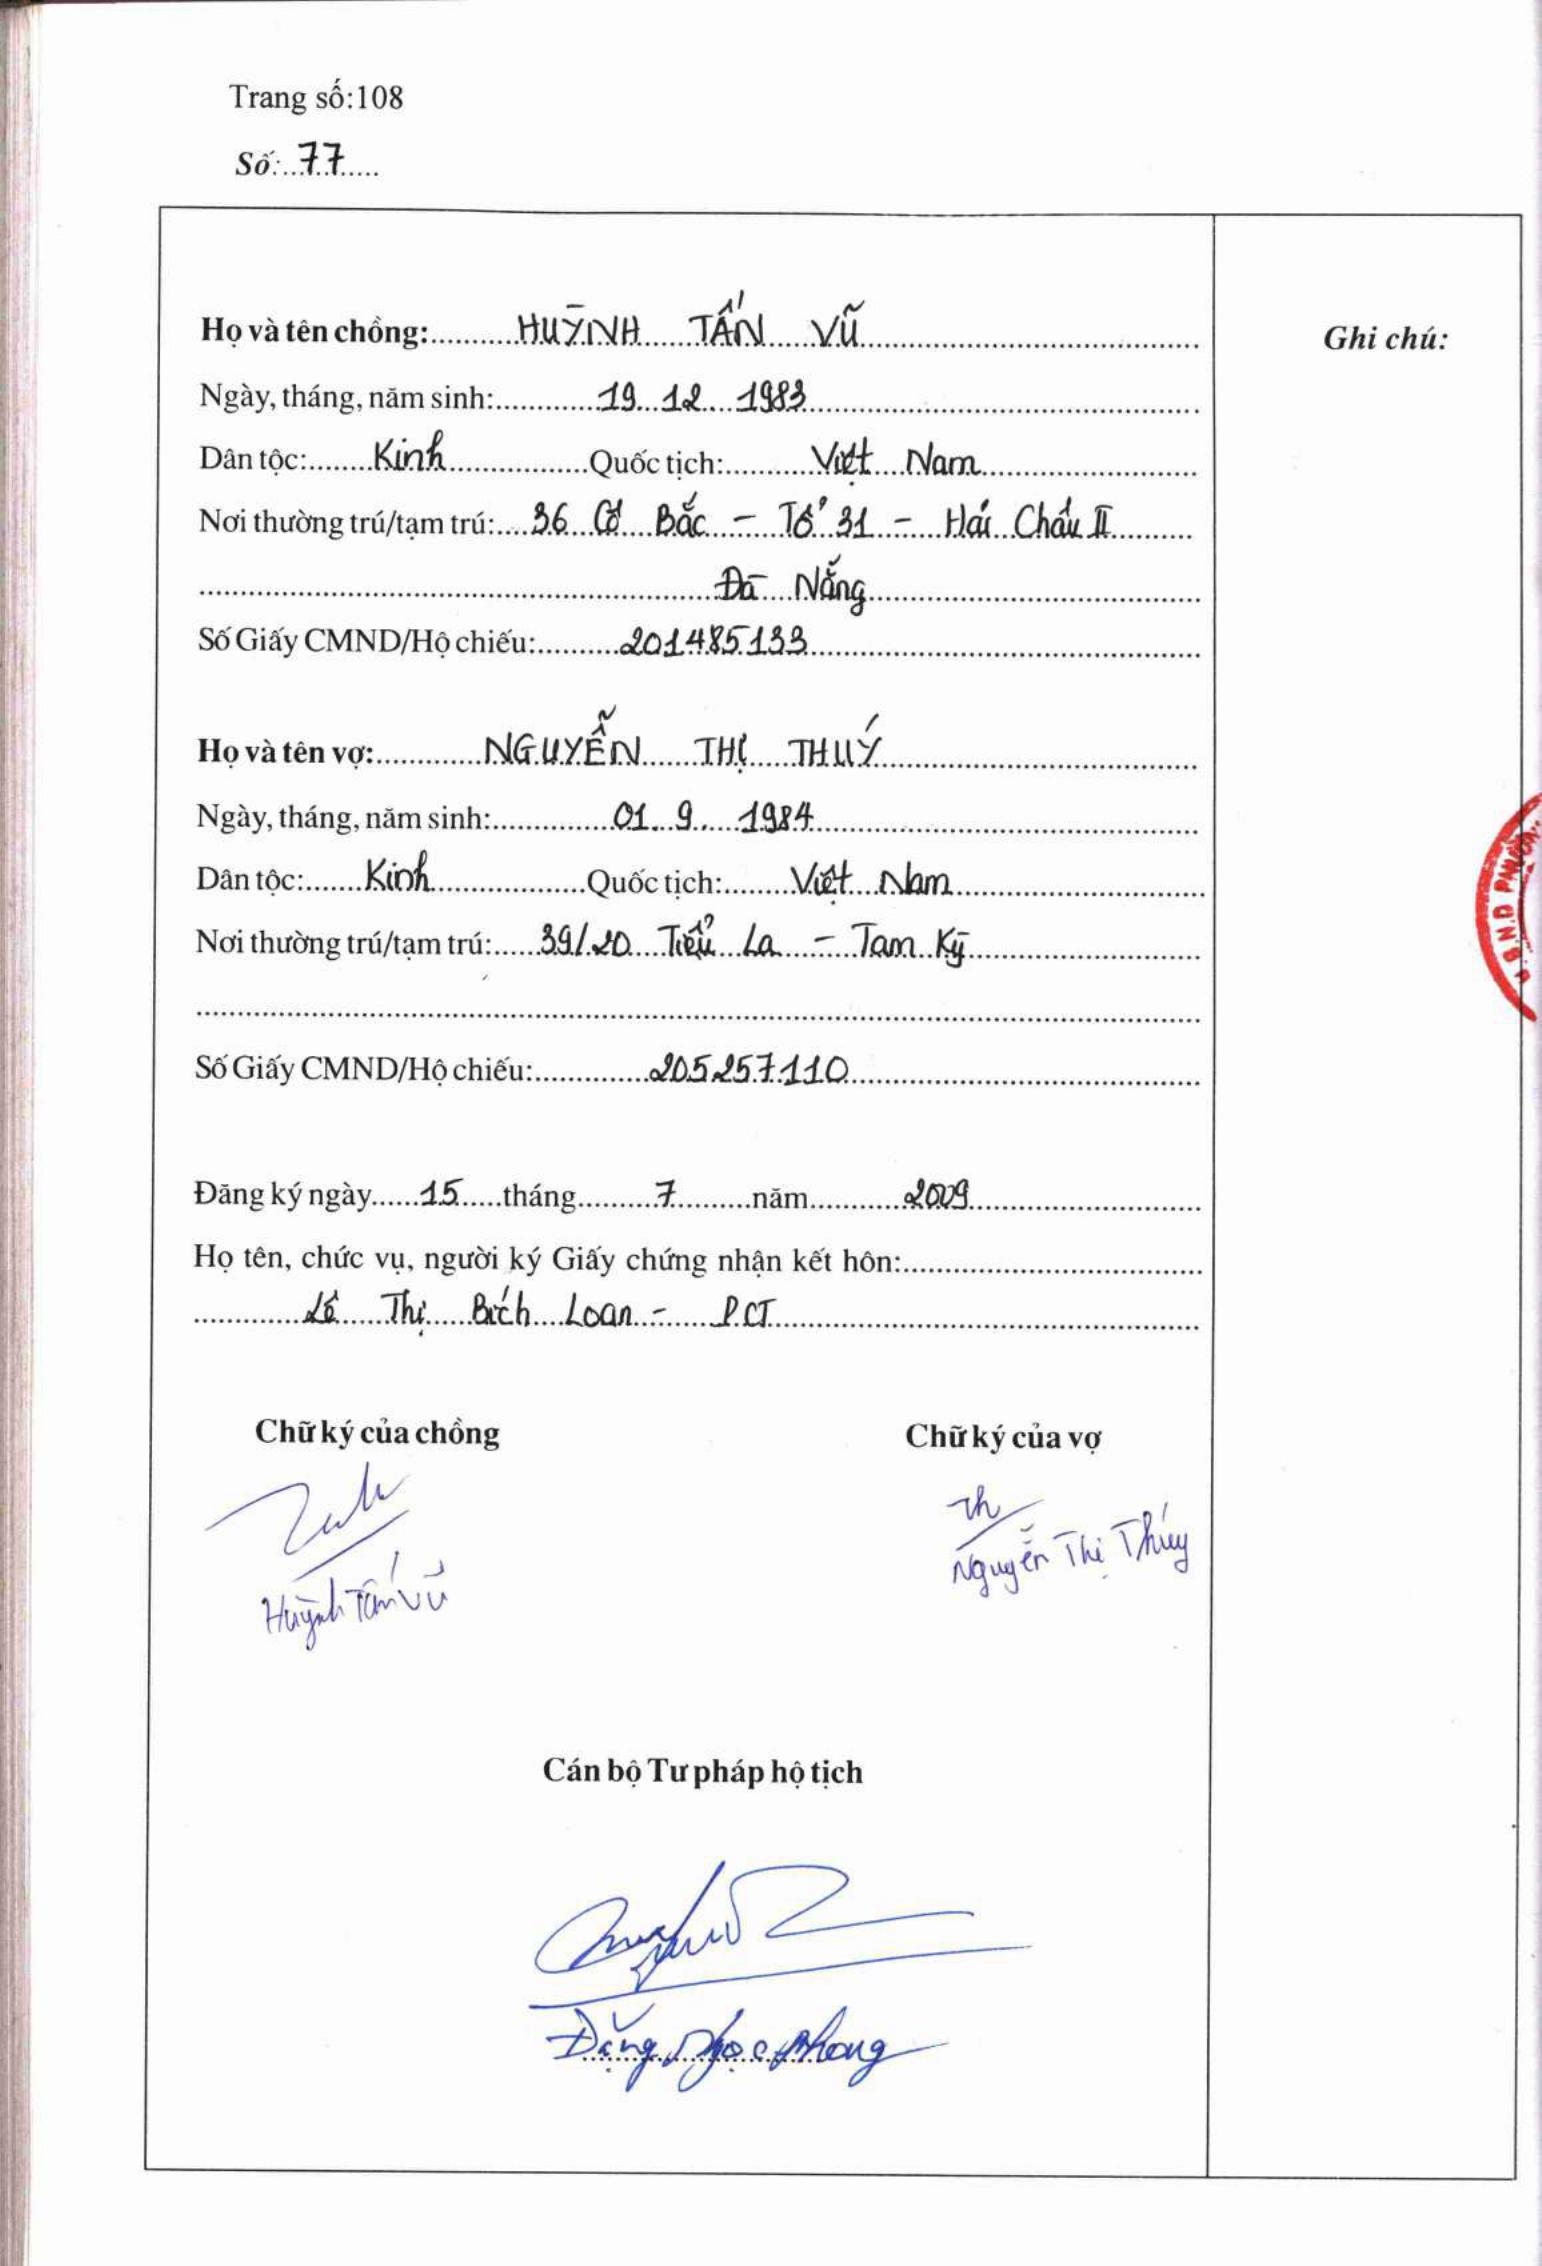 Trang số:108
Số: 77
Họ và tên chồng: HUỲNH TẤN VŨ
Ghi chú:
Ngày, tháng, năm sinh: 19 12 1983
Dân tộc: Kinh Quốc tịch: Việt Nam
Nơi thường trú/tạm trú: 36 Cô Bắc - Tổ 31 - Hải Châu II
Đà Nẵng
Số Giấy CMND/Hộ chiếu: 201485133
Họ và tên vợ: NGUYỄN THỊ THUÝ
Ngày, tháng, năm sinh: 01 9 1984
Dân tộc: Kinh Quốc tịch: Việt Nam
Nơi thường trú/tạm trú: 39/20 Tiểu La - Tam Kỳ
B.N.D PHƯỜN
Số Giấy CMND/Hộ chiếu: 205257110
Đăng ký ngày 15 tháng 7 năm 2009
Họ tên, chức vụ, người ký Giấy chứng nhận kết hôn:
Lê Thị Bích Loan - PCT
Chữ ký của chồng Chữ ký của vợ
Th
Huỳnh Tấn Vũ Nguyễn Thị Thúy
Cán bộ Tư pháp hộ tịch
Đặng Ngọc Phong